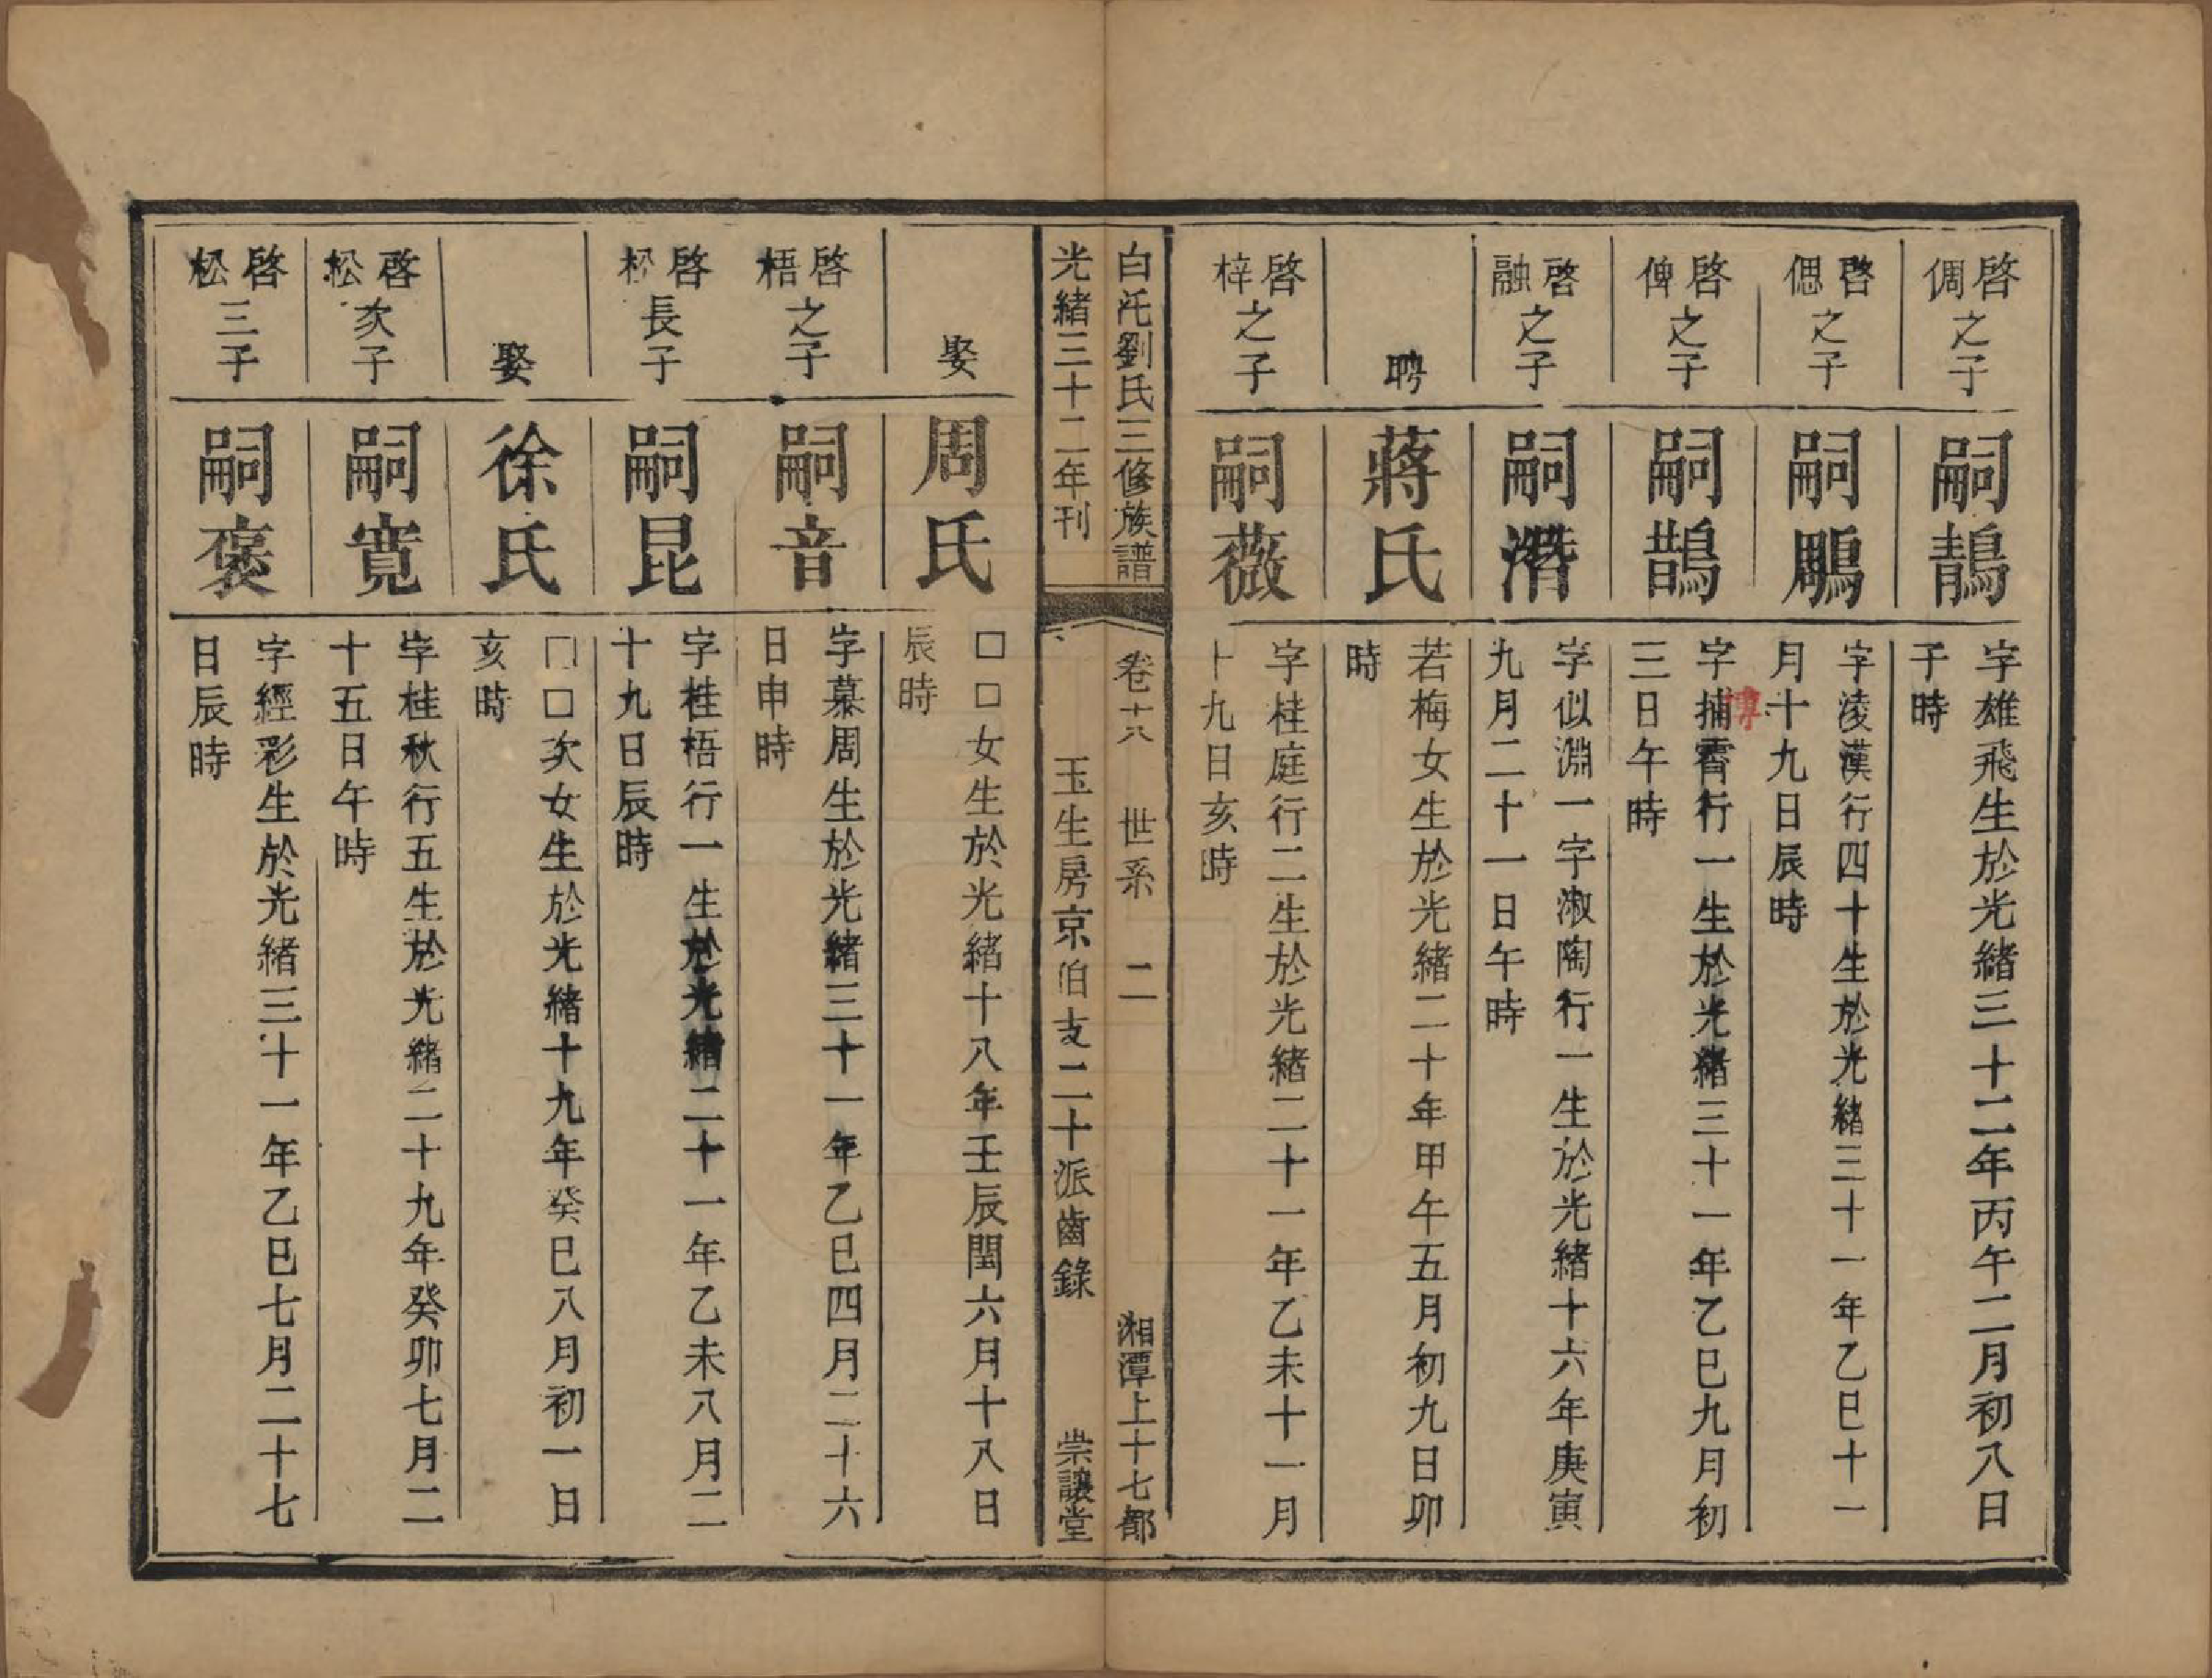 啓倜之子
嗣鶄
字雄飛生於光緒三十二年丙午二月初八日
子時
啓偲之子
嗣鵰
字淩漢行四十生於光緒三十一年乙巳十一
月十九日辰時
啓俾之子
嗣鵲
字捕霄行一生於光緒三十一年乙巳九月初
三日午時
啓融之子
嗣潛
字似淵一字淑陶行一生於光緒十六年庚寅
九月二十一日午時
聘
蔣氏
若梅女生於光緒二十年甲午五月初九日卯
時
啓梓之子
嗣薇
字桂庭行二生於光緒二十一年乙未十一月
十九日亥時
白沱劉氏三修族譜 卷十八 世系 二 湘潭上十七都
光緒三十二年刊 玉生房京伯支二十派齒錄 崇讓堂
娶
周氏
□□女生於光緒十八年壬辰閏六月十八日
辰時
啓梧之子
嗣音
字慕周生於光緒三十一年乙巳四月二十六
日申時
啓松長子
嗣昆
字桂梧行一生於光緒二十一年乙未八月二
十九日辰時
娶
徐氏
□□次女生於光緒十九年癸巳八月初一日
亥時
啓松次子
嗣寬
字桂秋行五生於光緒二十九年癸卯七月二
十五日午時
啓松三子
嗣褒
字經彩生於光緒三十一年乙巳七月二十七
日辰時